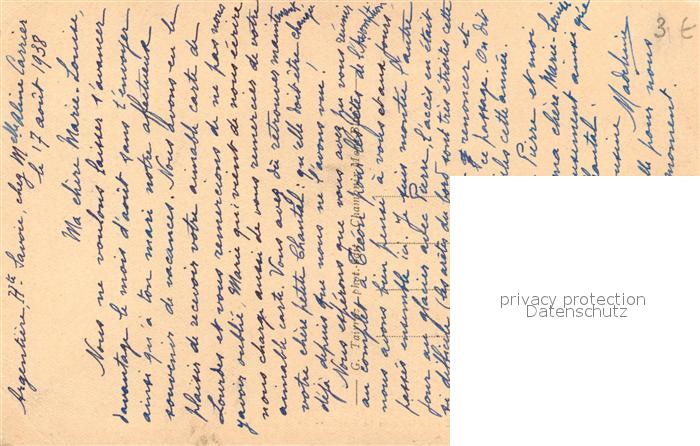 Argentière, Hte Savoie, chez Me Maline Carrier
le 17 août 1938
Ma chère Marie-Louise,
Nous ne voulons laisser s'avancer
davantage le mois d'août sans t'envoyer
ainsi qu'à ton mari notre affectueux
souvenir de vacances. Nous avons eu le
plaisir de recevoir votre aimable carte de
Lourdes et vous remercions de ne pas nous
y avoir oublié, Marie qui vient de nous écrire
nous charge aussi de vous remercier de votre
aimable carte. Vous avez dû retrouver maintenant
votre chère petite Chantal: qu'elle doit être changée
déjà depuis que nous ne l'avons vue!
Nous espérons que vous avez pu vous réunir
au complet à pour les fêtes de l'Assomption
nous avons bien pensé à vous et aux jours
passés ensemble ici. Je suis montée l'autre
jour au glacier avec Pierre, l'accès en était
si difficile (les arêtes du bord sont très étroites cette
renoncer et
ce passage. On dit
cette année.
Pierre et moi
ma chère Marie-Louise
ainsi que
Chantal.
Madeleine
pour nous
G. Tairraz, phot. Chamonix
3.€
privacy protection
Datenschutz